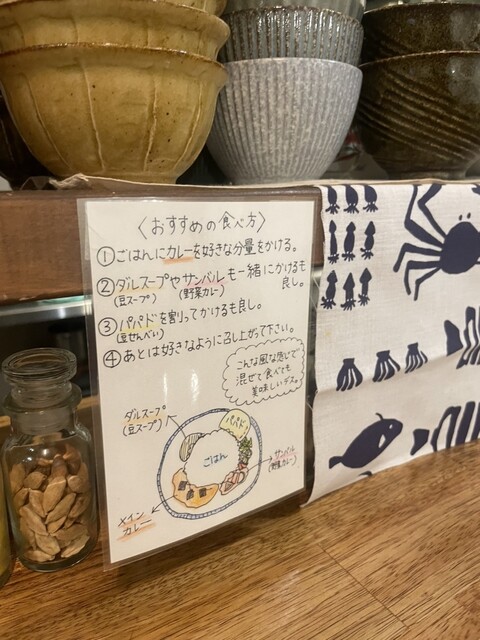 〈おすすめの食べ方〉
①ごはんにカレーを好きな分量をかける。
②ダルスープやサンバルも一緒にかけるも良し。
(豆スープ) (野菜カレー)
③パパドを割ってかけるも良し。
(豆せんべい)
④あとは好きなように召し上がって下さい。
こんな風な感じで
混ぜて食べても
美味しいデス。
ダルスープ
(豆スープ)
パパド
ごはん
サンバル
(野菜カレー)
メイン
カレー